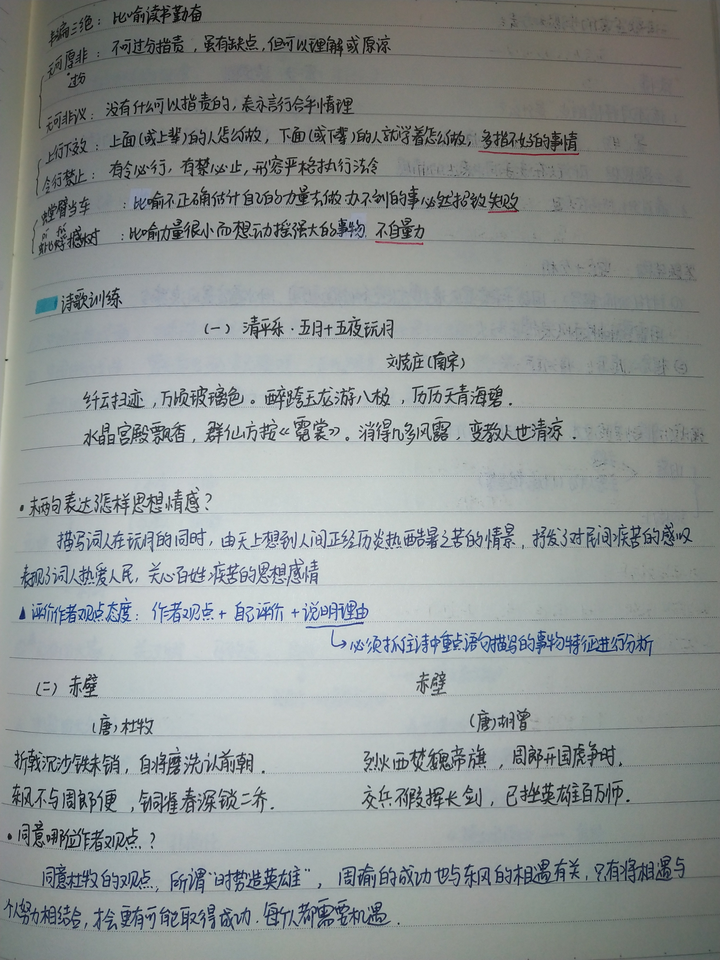 韦编三绝：比喻读书勤奋
无可厚非：不可过分指责，虽有缺点，但可以理解或原谅
过分
无可非议：没有什么可以指责的，表示言行合乎情理
上行下效：上面(或上辈)的人怎么做，下面(或下辈)的人就学着怎么做，多指不好的事情
令行禁止：有令必行，有禁必止，形容严格执行法令
螳臂当车：比喻不正确估计自己的力量去做办不到的事必然招致失败
蚍蜉撼树：比喻力量很小而想动摇强大的事物，不自量力
诗歌训练
(一) 清平乐·五月十五夜玩月
刘克庄(南宋)
纤云扫迹，万顷玻璃色。醉跨玉龙游八极，历历天青海碧.
水晶宫殿飘香，群仙方按《霓裳》。消得几多风露，变教人世清凉.
•末两句表达了怎样思想情感?
描写词人在玩月的同时，由天上想到人间正经历炎热酷暑之苦的情景，抒发了对民间疾苦的感叹
表现了词人热爱人民，关心百姓疾苦的思想感情
▲评价作者观点态度：作者观点+自己评价+说明理由
↳必须抓住诗中重点语句描写的事物特征进行分析
(二) 赤壁 赤壁
(唐)杜牧 (唐)胡曾
折戟沉沙铁未销，自将磨洗认前朝. 烈火西焚魏帝旗，周郎开国虎争时.
东风不与周郎便，铜雀春深锁二乔. 交兵不假挥长剑，已挫英雄百万师.
•同意哪位作者观点?
同意杜牧的观点，所谓"时势造英雄"，周瑜的成功也与东风的相遇有关，只有将相遇与
个人努力相结合，才会更有可能取得成功.每个人都需要机遇.